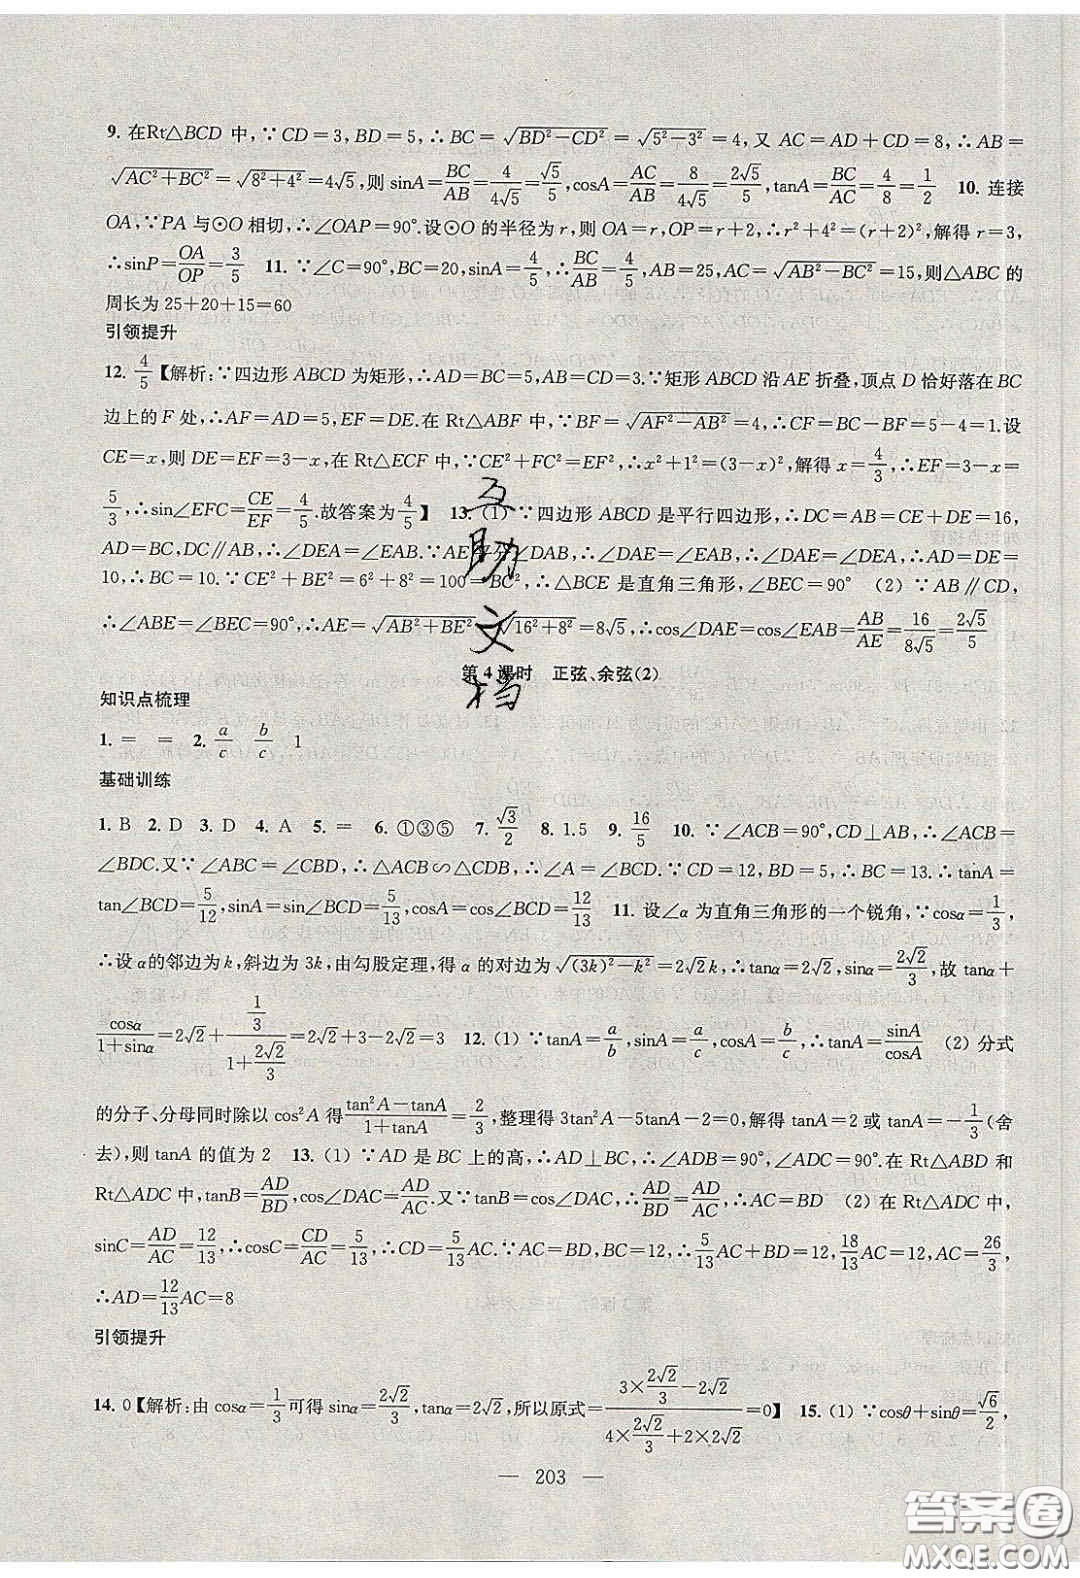 9. 在Rt△BCD 中,∵CD=3,BD=5,∴BC=√(BD²-CD²)=√(5²-3²)=4,又 AC=AD+CD=8,∴AB=
√(AC²+BC²)=√(8²+4²)=4√5,则 sinA=BC/AB=4/(4√5)=√5/5,cosA=AC/AB=8/(4√5)=2√5/5,tanA=BC/AC=4/8=1/2 10. 连接
OA,∵PA 与⊙O 相切,∴∠OAP=90°.设⊙O 的半径为 r,则 OA=r,OP=r+2,∴r²+4²=(r+2)²,解得 r=3,
∴sinP=OA/OP=3/5 11. ∵∠C=90°,BC=20,sinA=4/5,∴BC/AB=4/5,AB=25,AC=√(AB²-BC²)=15,则△ABC 的
周长为 25+20+15=60
引领提升
12. 4/5【解析:∵四边形 ABCD 为矩形,∴AD=BC=5,AB=CD=3.∵矩形 ABCD 沿 AE 折叠,顶点 D 恰好落在 BC
边上的 F 处,∴AF=AD=5,EF=DE.在 Rt△ABF 中,∵BF=√(AF²-AB²)=4,∴CF=BC-BF=5-4=1.设
CE=x,则 DE=EF=3-x,在 Rt△ECF 中,∵CE²+FC²=EF²,∴x²+1²=(3-x)²,解得 x=4/3,∴EF=3-x=
5/3,∴sin∠EFC=CE/EF=4/5.故答案为4/5】 13. (1) ∵四边形 ABCD 是平行四边形,∴DC=AB=CE+DE=16,
AD=BC,DC∥AB,∴∠DEA=∠EAB.∵AE 平分∠DAB,∴∠DAE=∠EAB,∴∠DAE=∠DEA,∴AD=DE=
10,∴BC=10.∵CE²+BE²=6²+8²=100=BC²,∴△BCE 是直角三角形,∠BEC=90° (2) ∵AB∥CD,
∴∠ABE=∠BEC=90°,∴AE=√(AB²+BE²)=√(16²+8²)=8√5,∴cos∠DAE=cos∠EAB=AB/AE=16/(8√5)=2√5/5
第 4 课时 正弦、余弦(2)
知识点梳理
1. = = 2. a/c b/c 1
基础训练
1. B 2. D 3. D 4. A 5. = 6. ①③⑤ 7. √3/2 8. 1.5 9. 16/5 10. ∵∠ACB=90°,CD⊥AB,∴∠ACB=
∠BDC.又∵∠ABC=∠CBD,∴△ACB∽△CDB,∴∠A=∠BCD.∵CD=12,BD=5,∴BC=13.∴tanA=
tan∠BCD=5/12,sinA=sin∠BCD=5/13,cosA=cos∠BCD=12/13 11. 设∠α 为直角三角形的一个锐角,∵cosα=1/3,
∴设 α的邻边为 k,斜边为 3k,由勾股定理,得 α 的对边为√((3k)²-k²)=2√2k,∴tanα=2√2,sinα=2√2/3,故 tanα+
cosα/(1+sinα)=2√2+(1/3)/(1+2√2/3)=2√2+3-2√2=3 12. (1) ∵tanA=a/b,sinA=a/c,cosA=b/c,∴tanA=sinA/cosA (2) 分式
的分子、分母同时除以 cos²A 得(tan²A-tanA)/(1+tanA)=2/3,整理得 3tan²A-5tanA-2=0,解得 tanA=2 或 tanA=-1/3(舍
去),则 tanA 的值为 2 13. (1) ∵AD 是 BC 上的高,∴AD⊥BC,∴∠ADB=90°,∠ADC=90°.在 Rt△ABD 和
Rt△ADC 中,tanB=AD/BD,cos∠DAC=AD/AC.又∵tanB=cos∠DAC,∴AD/BD=AD/AC,∴AC=BD (2) 在 Rt△ADC 中,
sinC=AD/AC=12/13,∴cosC=CD/AC=5/13,∴CD=5/13AC.∵AC=BD,BC=12,∴5/13AC+BD=12,18/13AC=12,AC=26/3,
∴AD=12/13AC=8
引领提升
14. 0【解析:由 cosα=1/3可得 sinα=2√2/3,tanα=2√2,所以原式=(3×2√2/3-2√2)/(4×2√2/3+2×2√2)=0】 15. (1) ∵cosθ+sinθ=√6/2,
— 203 —
互助文档
答案圈
MXQE.COM